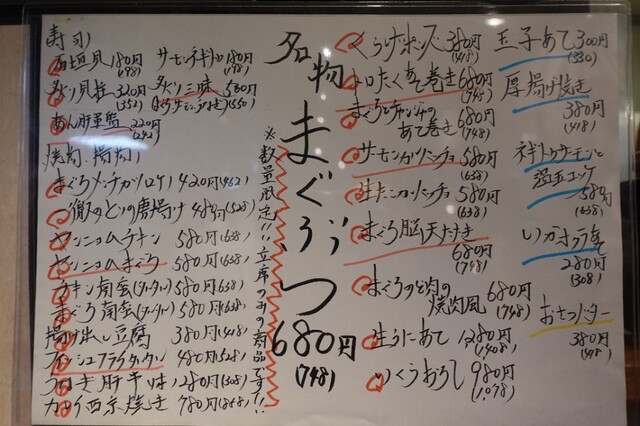 寿司
石垣貝180円(198) サーモンネギトロ180円(198)
炙り貝柱320円(352) 炙り三昧 500円(550)
あん肝軍艦 220円(242)
焼物、揚物
まぐろメンチカツ(ロケ) 420円(462)
のどの唐揚げ 480円(528)
ヤンニョムチキン 580円(638)
ヤンニョムまぐろ 580円(638)
チキン南蛮(タルタル) 580円(638)
まぐろ南蛮(タルタル) 580円(638)
揚げ出し豆腐 380円(418)
フィッシュフライタルタル 480円(528)
280円(308)
カレイ西京焼き 780円(858)
※数量限定!! 立庫のみの商品です!!
名物まぐぶつ
680円
(748)
くらげポン酢 380円(418)
トロたくあて巻き 680円(748)
まぐろとチャンジャの
あて巻き 680円(748)
サーモンカルパッチョ 580円(638)
生たこカルパッチョ 580円(638)
まぐろ脳天たたき
680円(748)
まぐろのど肉の
焼肉風 680円(748)
生うにあて 1280円(1408)
いくらおろし 980円(1,078)
玉子あて 300円(330)
厚揚げ焼き
380円(418)
ネギトロサーモンと
温玉ユッケ
580円(638)
いかオクラあて
280円(308)
おさつバター
380円(418)